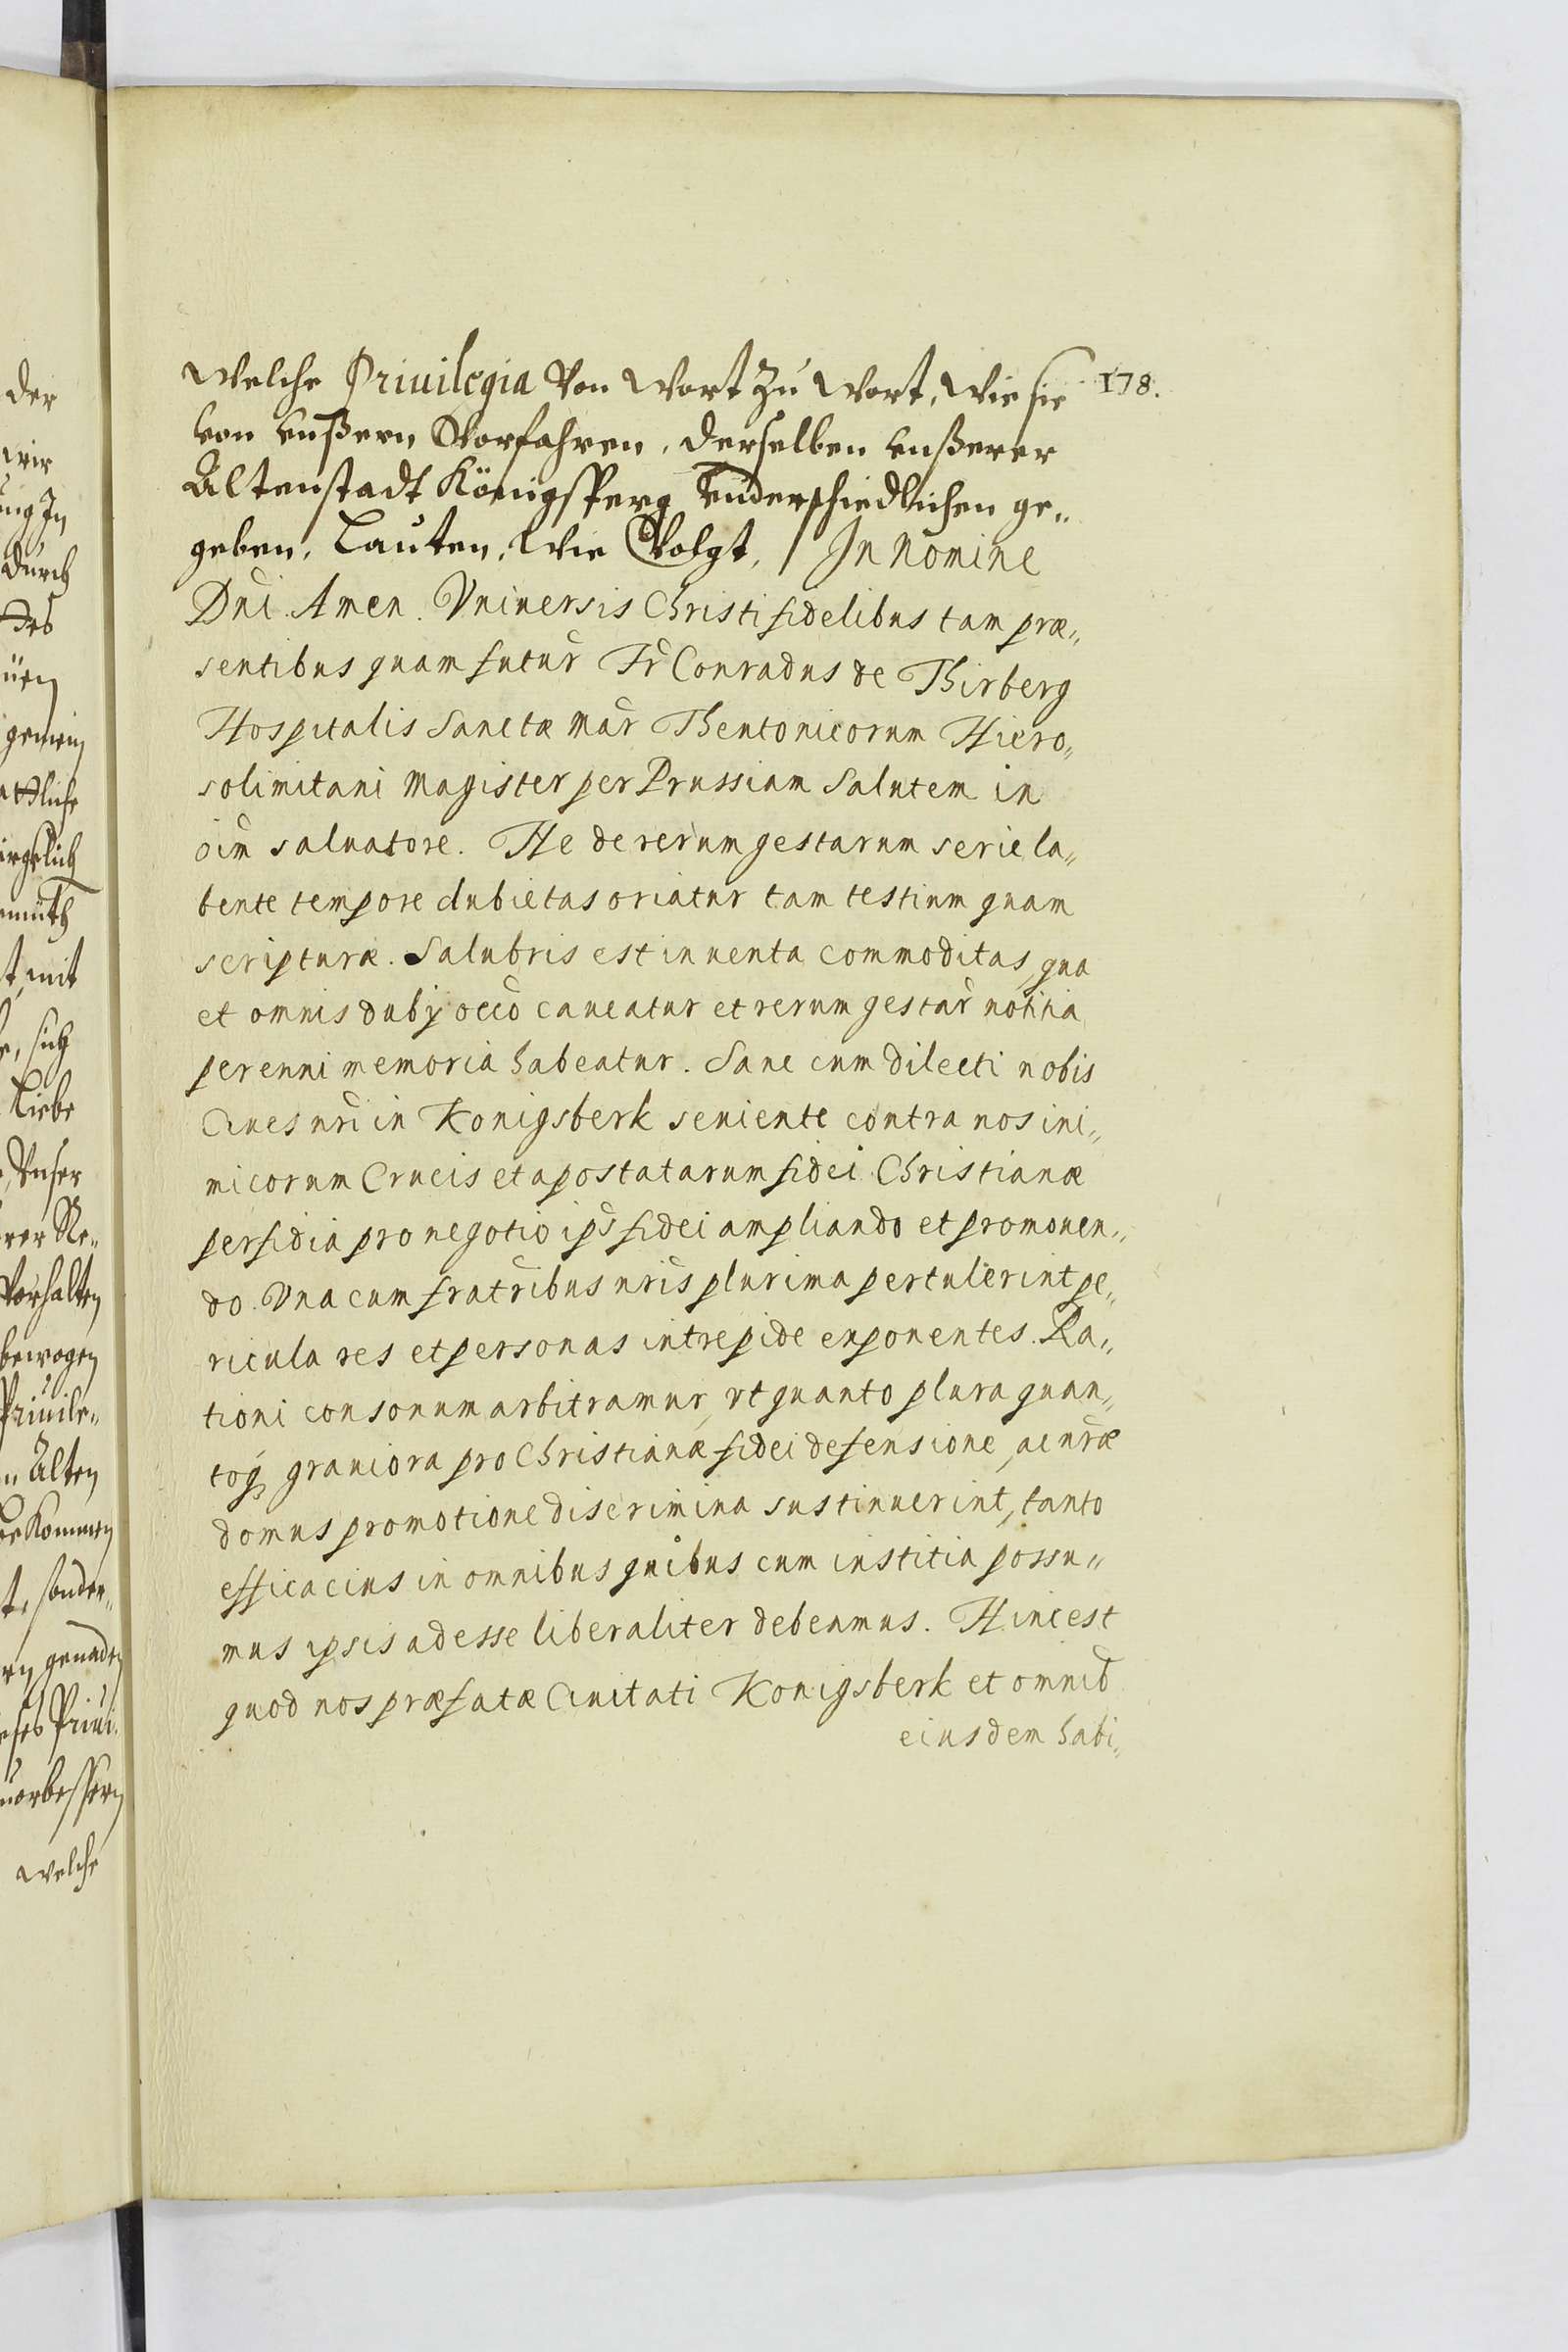 Welche Priuilegia Von Wort zu Wort, Wie sie 178.
von vnßern Vorfahren, derselben vnßerer
Altenstadt Königsperg Vnderschiedlichen ge„
geben, Lauten, Wie Volgt, / In Nomine
Dni Amen. Vniuersis Christi fidelibus tam præ„
sentibus quam futur Fr Conradus de Thirberg
Hospitalis Sanctæ Mar Theutonicorum Hiero„
solimitani Magister per Prussiam Salutem in
oim saluatore. Ne de rerum gestarum serie la„
bente tempore dubietas oriatur tam testium quam
scripturæ. Salubris est inuenta commoditas, qua
et omnis dubij occo caueatur et rerum gestar notitia
perenni memoria habeatur. Sane cum dilecti nobis
Ciues nri in Konigsberk seuiente contra nos ini„
micorum Crucis et apostatarum fidei Christianæ
perfidia pro negotio ips fidei ampliando et promouen„
do. Vna cum fratribus nris plurima pertulerint pe„
ricula res et personas intrepide exponentes. Ra„
tioni consonum arbitramur, vt quanto plura quan„
toq grauiora pro Christianæ fidei defensione, ac nræ
domus promotione discrimina sustinuerint, tanto
efficacius in omnibus quibus cum iustitia possu„
mus ipsis adesse liberaliter debeamus. Hinc est
quod nos præfatæ Ciuitati Konigsberk et omnib
eiusdem habi„
der
wir
ung In
durch
des
gemein
mit
sich
Liebe
Vnser
Vorhalten
bewogen
Priuile„
Alten
sonder„
genaden
Priui„
welche